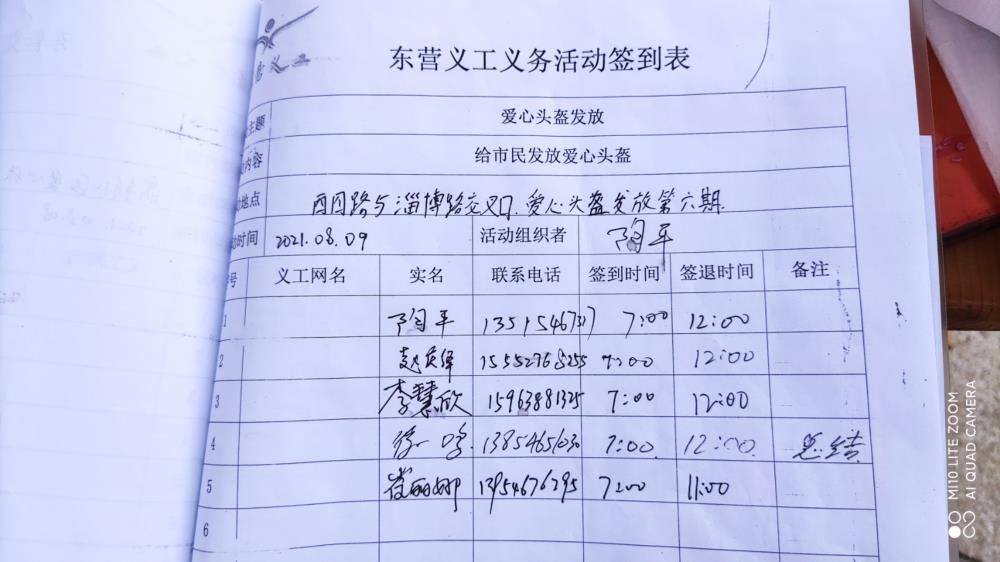 东营义工义务活动签到表
主题 爱心头盔发放
内容 给市民发放爱心头盔
地点 西四路与淄博路交叉口.爱心头盔发放第六期.
动时间 2021.08.09 活动组织者 陶平
号 义工网名 实名 联系电话 签到时间 签退时间 备注
1 陶平 13515467317 7:00 12:00
2 15552768255 7:00 12:00
3 李慧欣 15963881325 7:00 12:00
4 徐一鸣 1385465030 7:00. 12:00. 总结
5 崔丽娜 13954676295 7:00 11:00
6
MI 10 LITE ZOOM
AI QUAD CAMERA